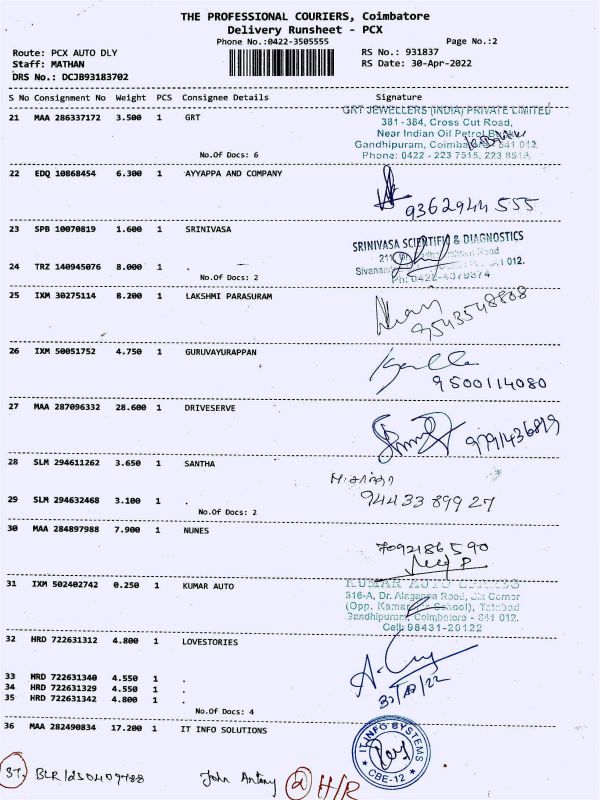 THE PROFESSIONAL COURIERS, Coimbatore
Delivery Runsheet - PCX
Phone No.:0422-3505555
Page No.:2
Route: PCX AUTO DLY
RS No.: 931837
Staff: MATHAN
RS Date: 30-Apr-2022
DRS No.: DCJB93183702
S No Consignment No Weight PCS Consignee Details Signature
21 MAA 286337172 3.500 1 GRT
GRT JEWELLERS (INDIA) PRIVATE LIMITED
381 - 384, Cross Cut Road,
Near Indian Oil Petrol
Gandhipuram, 641 012
No.Of Docs: 6
Phone: 0422 - 223 7515, 223 8514
22 EDQ 10868454 6.300 1 AYYAPPA AND COMPANY
9362944555
23 SPB 10070819 1.600 1 SRINIVASA
SRINIVASA SCIENTIFIC & DIAGNOSTICS
24 TRZ 140945076 8.000 1 .
No.Of Docs: 2
25 IXM 30275114 8.200 1 LAKSHMI PARASURAM
26 IXM 50051752 4.750 1 GURUVAYURAPPAN
9500114080
27 MAA 287096332 28.600 1 DRIVESERVE
9791436819
28 SLM 294611262 3.650 1 SANTHA
29 SLM 294632468 3.100 1 .
9443389927
No.Of Docs: 2
30 MAA 284897988 7.900 1 NUNES
7092186590
31 IXM 502402742 0.250 1 KUMAR AUTO
KUMAR AUTO
316-A, Dr. Alagappa Road,
(Opp. School), Tatabad
Gandhipuram, Coimbatore - 641 012.
Cell: 98431-20122
32 HRD 722631312 4.800 1 LOVESTORIES
33 HRD 722631340 4.550 1 .
34 HRD 722631329 4.550 1 .
35 HRD 722631342 4.800 1 .
No.Of Docs: 4
36 MAA 282490834 17.200 1 IT INFO SOLUTIONS
IT INFO SYSTEMS
CBE-12
37. John Antony @ H/R